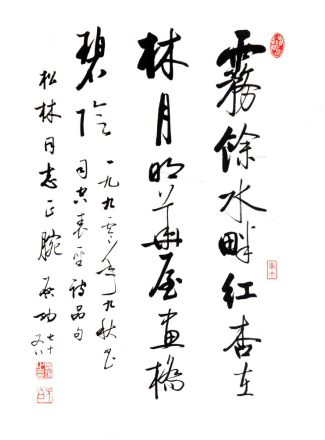 霧餘水畔紅杏在
林月明華屋畫橋
碧陰
一九九零年九秋書
司空表聖詩品句
松林同志正腕 启功 七十又八